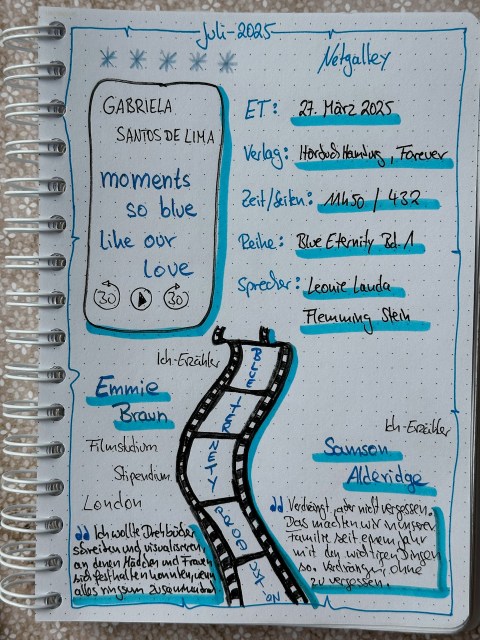 Juli-2025
Netgalley
GABRIELA
SANTOS DE LIMA
moments
so blue
like our
love
30
30
ET: 27. März 2025
Verlag: Hörbuch Hamburg, Forever
Zeit/Seiten: 11h50 / 432
Reihe: Blue Eternity Bd. 1
Sprecher: Leonie Landa
Flemming Stein
Ich-Erzähler
Emmie
Braun
Filmstudium
Stipendium
London
Ich wollte Drehbücher
schreiben und visualisieren,
an denen Mädchen und Frauen
sich festhalten konnten, wenn
alles ringsum zusammenbrach
BLUE
ETER
NETY
PROD
UKT
ION
Ich-Erzähler
Samson
Alderidge
Verdrängt, aber nicht vergessen.
Das machten wir in unserer
Familie seit einem Jahr
mit den wichtigen Dingen
so. Verdrängen, ohne
zu vergessen.